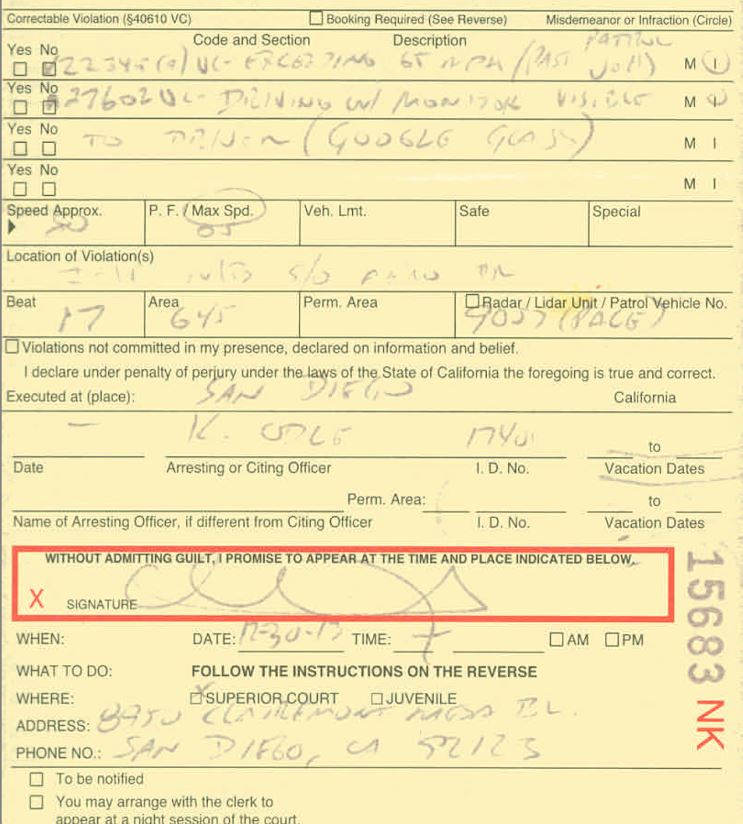 Correctable Violation (§40610 VC) Booking Required (See Reverse) Misdemeanor or Infraction (Circle)
Yes No Code and Section Description PATROL
22349(a) VC- EXCEEDING 65 MPH (PAST M I
Yes No
27602 VC- DRIVING W/ MONITOR VISIBLE M I
Yes No
TO DRIVER (GOOGLE GLASS) M I
Yes No
M I
Speed Approx. P. F. / Max Spd. Veh. Lmt. Safe Special
65
Location of Violation(s)
S/O
Beat Area Perm. Area Radar / Lidar Unit / Patrol Vehicle No.
17 645 (PACE)
Violations not committed in my presence, declared on information and belief.
I declare under penalty of perjury under the laws of the State of California the foregoing is true and correct.
Executed at (place): SAN DIEGO California
K. to
Date Arresting or Citing Officer I. D. No. Vacation Dates
Perm. Area: to
Name of Arresting Officer, if different from Citing Officer I. D. No. Vacation Dates
WITHOUT ADMITTING GUILT, I PROMISE TO APPEAR AT THE TIME AND PLACE INDICATED BELOW.
X SIGNATURE
WHEN: DATE: TIME: AM PM
WHAT TO DO: FOLLOW THE INSTRUCTIONS ON THE REVERSE
WHERE: X SUPERIOR COURT JUVENILE
ADDRESS: 8950 CLAIREMONT MESA BL.
PHONE NO.: SAN DIEGO, CA 92123
To be notified
You may arrange with the clerk to
appear at a night session of the court.
15683 NK